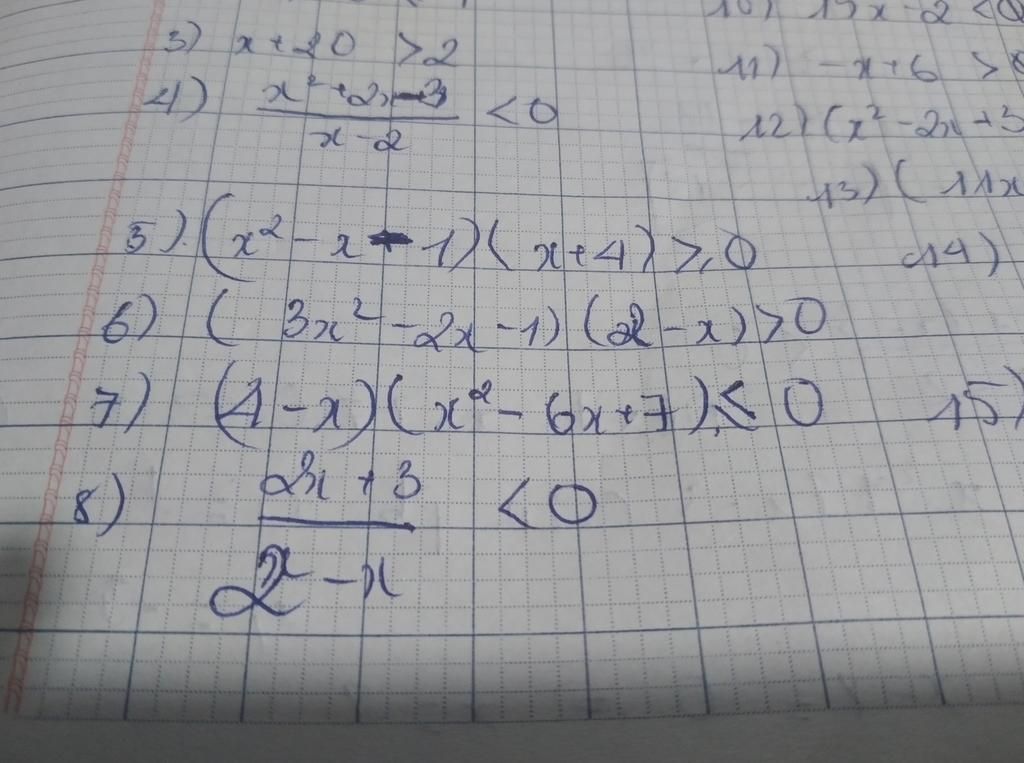 3) x+20 >2
4) (x²+2x-3)/(x-2) <0
5) (x²-x-1)(x+4)≥0
6) (3x²-2x-1)(2-x)>0
7) (1-x)(x²-6x+7)≤0
8) (2x+3)/(2-x) <0
10) x-2 <0
11) -x+6 >
12) (x²-2x+3
13) (11x
14)
15)